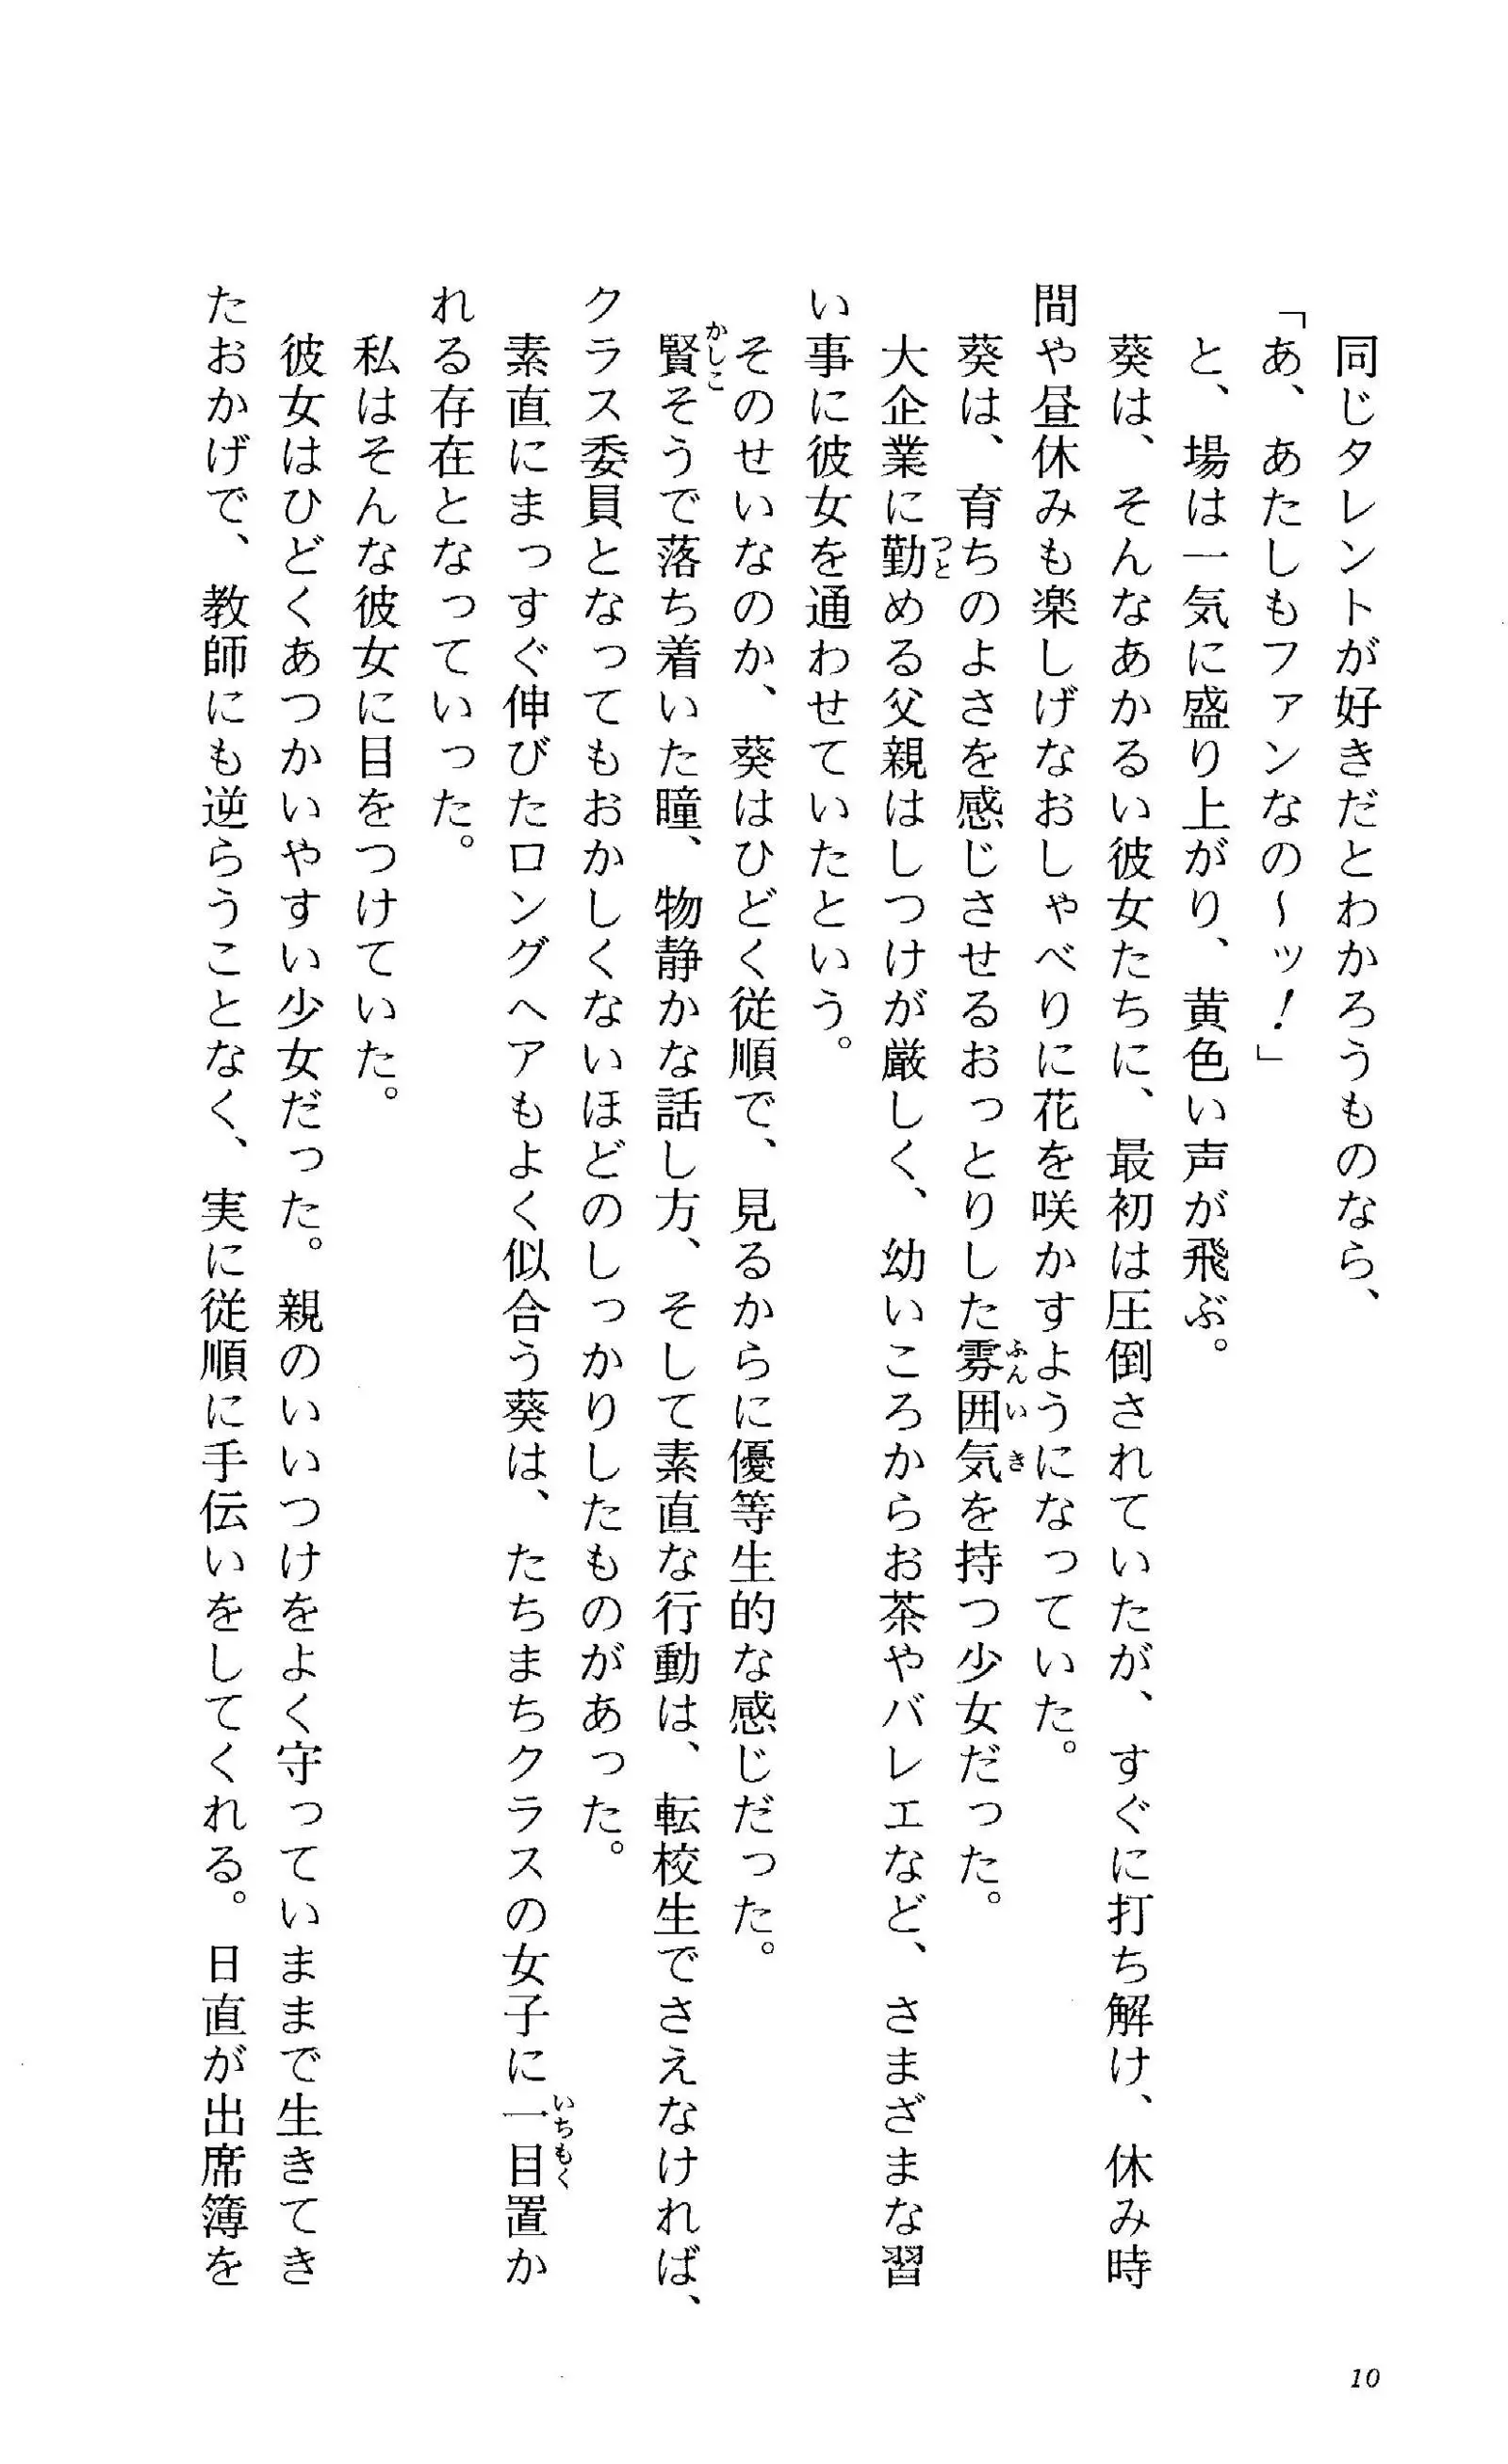 同じタレントが好きだとわかろうものなら、
「あ、あたしもファンなの～ッ！」
と、場は一気に盛り上がり、黄色い声が飛ぶ。
葵は、そんなあかるい彼女たちに、最初は圧倒されていたが、すぐに打ち解け、休み時
間や昼休みも楽しげなおしゃべりに花を咲かすようになっていた。
葵は、育ちのよさを感じさせるおっとりした雰囲気を持つ少女だった。
大企業に勤める父親はしつけが厳しく、幼いころからお茶やバレエなど、さまざまな習
い事に彼女を通わせていたという。
そのせいなのか、葵はひどく従順で、見るからに優等生的な感じだった。
賢そうで落ち着いた瞳、物静かな話し方、そして素直な行動は、転校生でさえなければ、
クラス委員となってもおかしくないほどのしっかりしたものがあった。
素直にまっすぐ伸びたロングヘアもよく似合う葵は、たちまちクラスの女子に一目置か
れる存在となっていった。
私はそんな彼女に目をつけていた。
彼女はひどくあつかいやすい少女だった。親のいいつけをよく守っていままで生きてき
たおかげで、教師にも逆らうことなく、実に従順に手伝いをしてくれる。日直が出席簿を
10